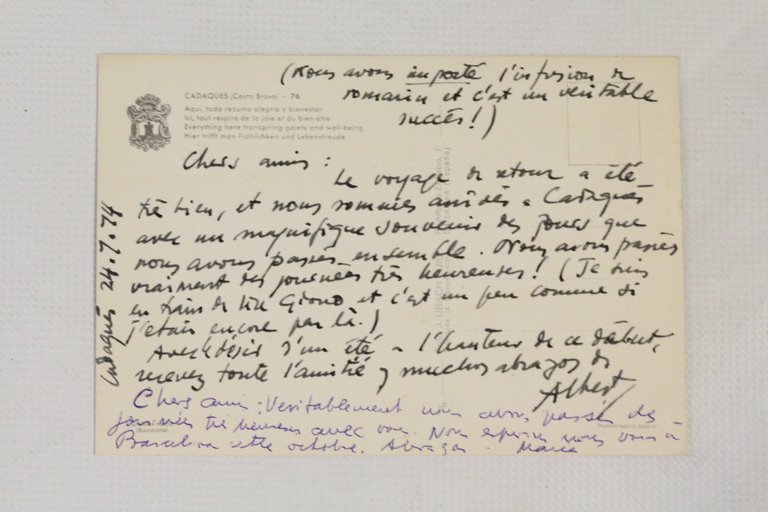 (Nous avons importé l'infusion de
romarin et c'est un veritable
succès!)
CADAQUES (Costa Brava) - 76
Aquí, todo rezuma alegria y bienestar
Ici, tout respire de la joie et du bien-être
Everything here transpiring gaiety and well-being
Hier trifft man Fröhlichkeit und Lebensfreude
Chers amis:
Le voyage de retour a été
très bien, et nous sommes arrivés a Cadaqués
avec un magnifique souvenir des jours que
nous avons passés ensemble. Nous avons passés
vraiment des journées très heureuses! (Je suis
en train de lire Giono et c'est un peu comme si
j'étais encore par là.)
Avec le désir d'un été a l'hauteur de ce début,
recevez toute l'amitié y muchos abrazos de
Albert
Cadaqués 24.7.74
Chers amis: Veritablement nous avons passé des
journées très heureuses avec vous. Nous esperons nous voir à
Barcelona cette octobre. Abrazos - Maria
(Barcelona)